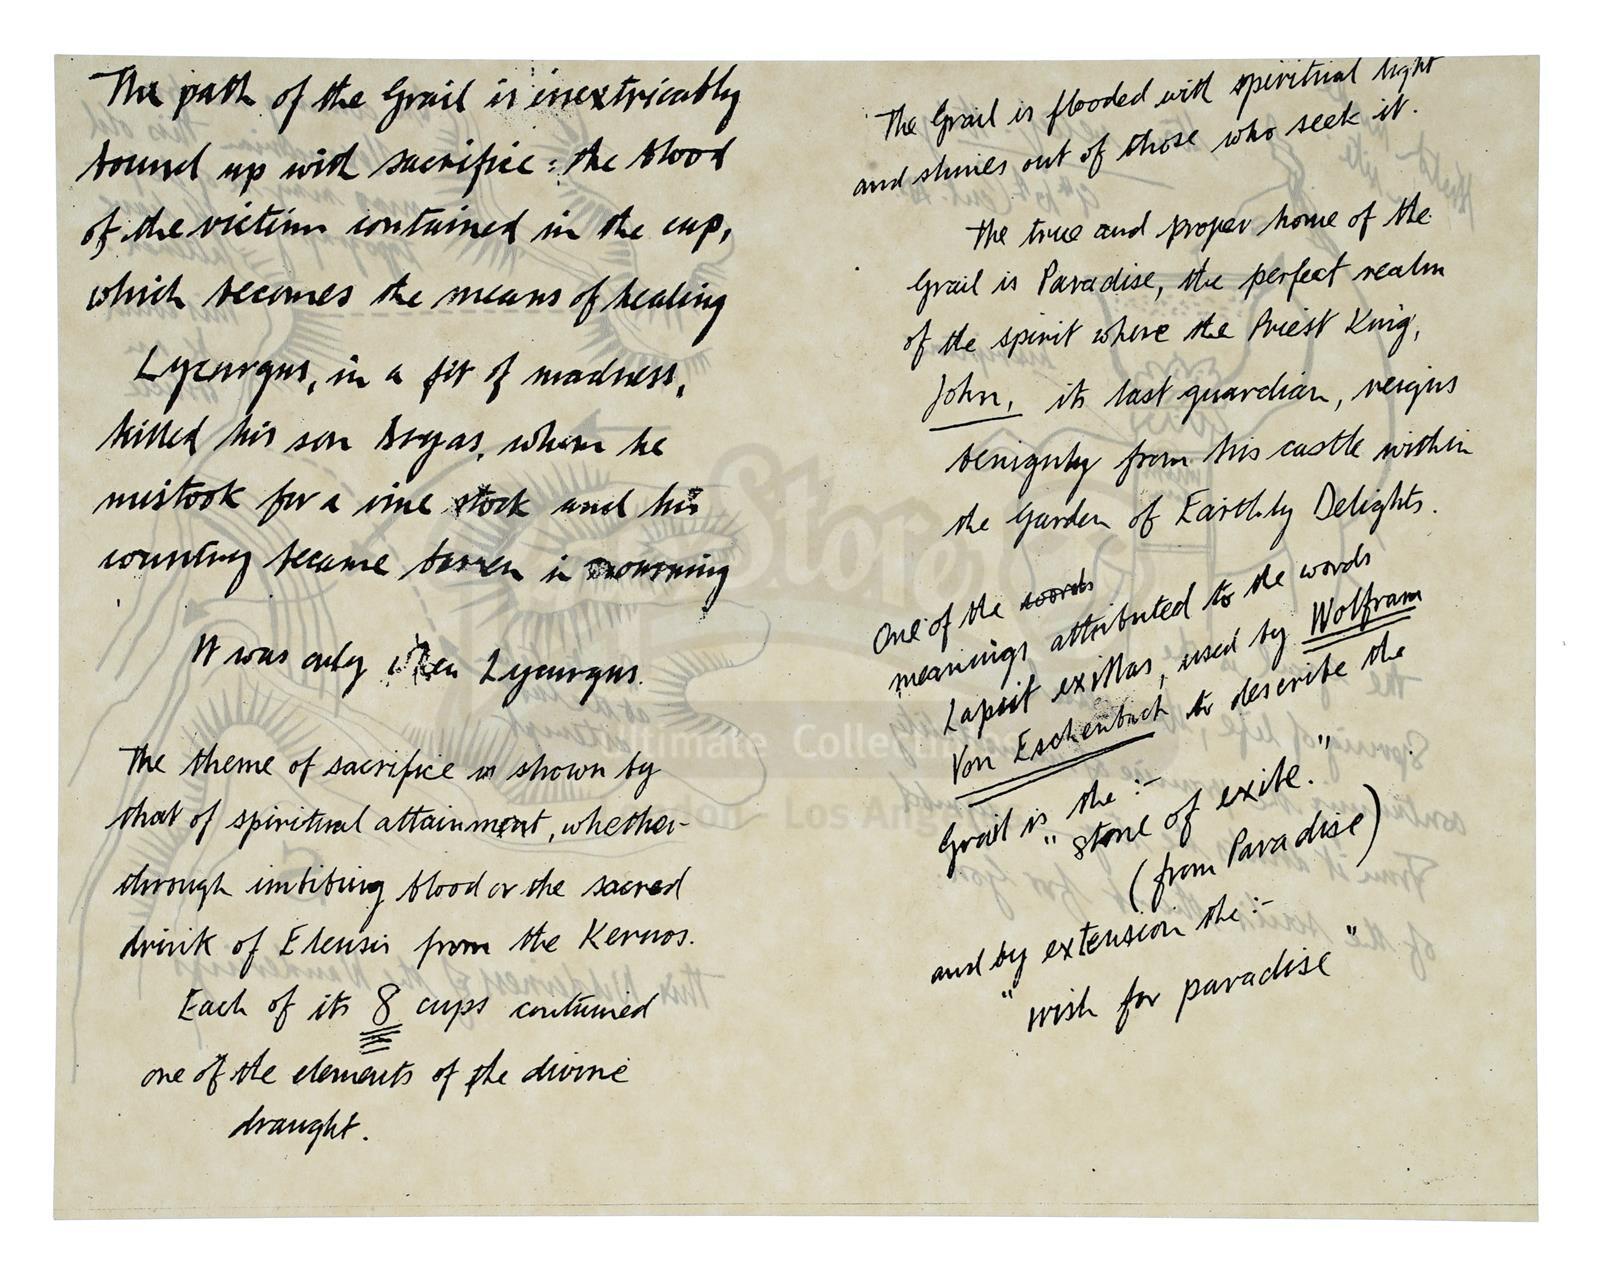 The path of the Grail is inextricably
bound up with sacrifice: the blood
of the victim contained in the cup,
which becomes the means of healing
Lycurgus, in a fit of madness,
killed his son Dryas, whom he
mistook for a vine stock and his
country became barren in mourning
It was only when Lycurgus.
The theme of sacrifice is shown by
that of spiritual attainment, whether
through imbibing blood or the sacred
drink of Eleusis from the Kernos.
Each of its 8 cups contained
one of the elements of the divine
draught.
The Grail is flooded with spiritual light
and shines out of those who seek it.
The true and proper home of the
Grail is Paradise, the perfect realm
of the spirit where the Priest King,
John, its last guardian, reigns
benignly from his castle within
the Garden of Earthly Delights.
One of the words
meanings attributed to the words
Lapsit exillas, used by Wolfram
Von Eschenbach to describe the
Grail is the :-
"stone of exile."
(from Paradise)
and by extension the :-
"wish for paradise"
Store
Ultimate Collec
don - Los Ang